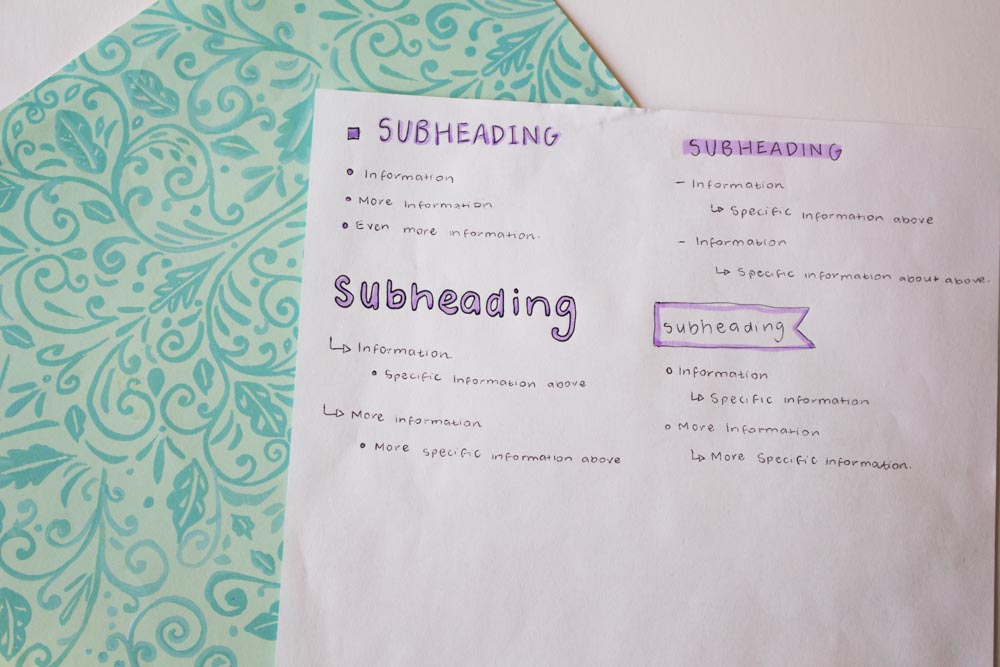 SUBHEADING
Information
More Information
Even more information.
Subheading
Information
Specific Information above
More information
More specific information above
SUBHEADING
- Information
Specific Information above
- Information
Specific information about above.
subheading
Information
Specific information
More Information
More Specific Information.